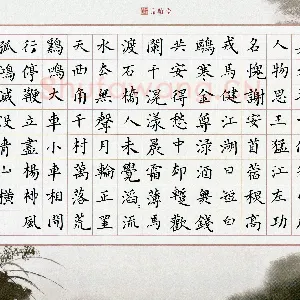 人物思王猛江左功
名愧謝安苜蓿秋高
戎馬健江湖日短白
鷗寒金尊淥酒無錢
共安得愁中却暫歡
闌干滉漾晨霜薄馬
渡石橋人未覺滔流
水厺無聲月正
天西南千村萬落荒
鷄鳴大車小車相間
行停鞭立盡楊柳風
孤鴻滅没青山横